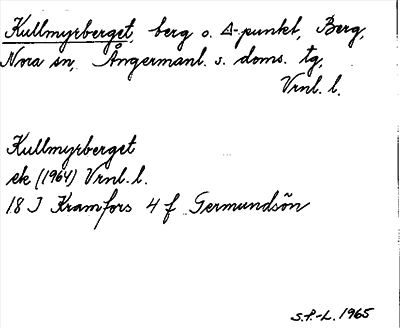 Kullmyrberget, berg o. Δ-punkt, Berg,
Nora sn, Ångermanl. s. doms. tg,
Vrnl. l.
Kullmyrberget
ek (1964) Vrnl. l.
18 J Kramfors 4 f Germundsön
S.P.-L. 1965